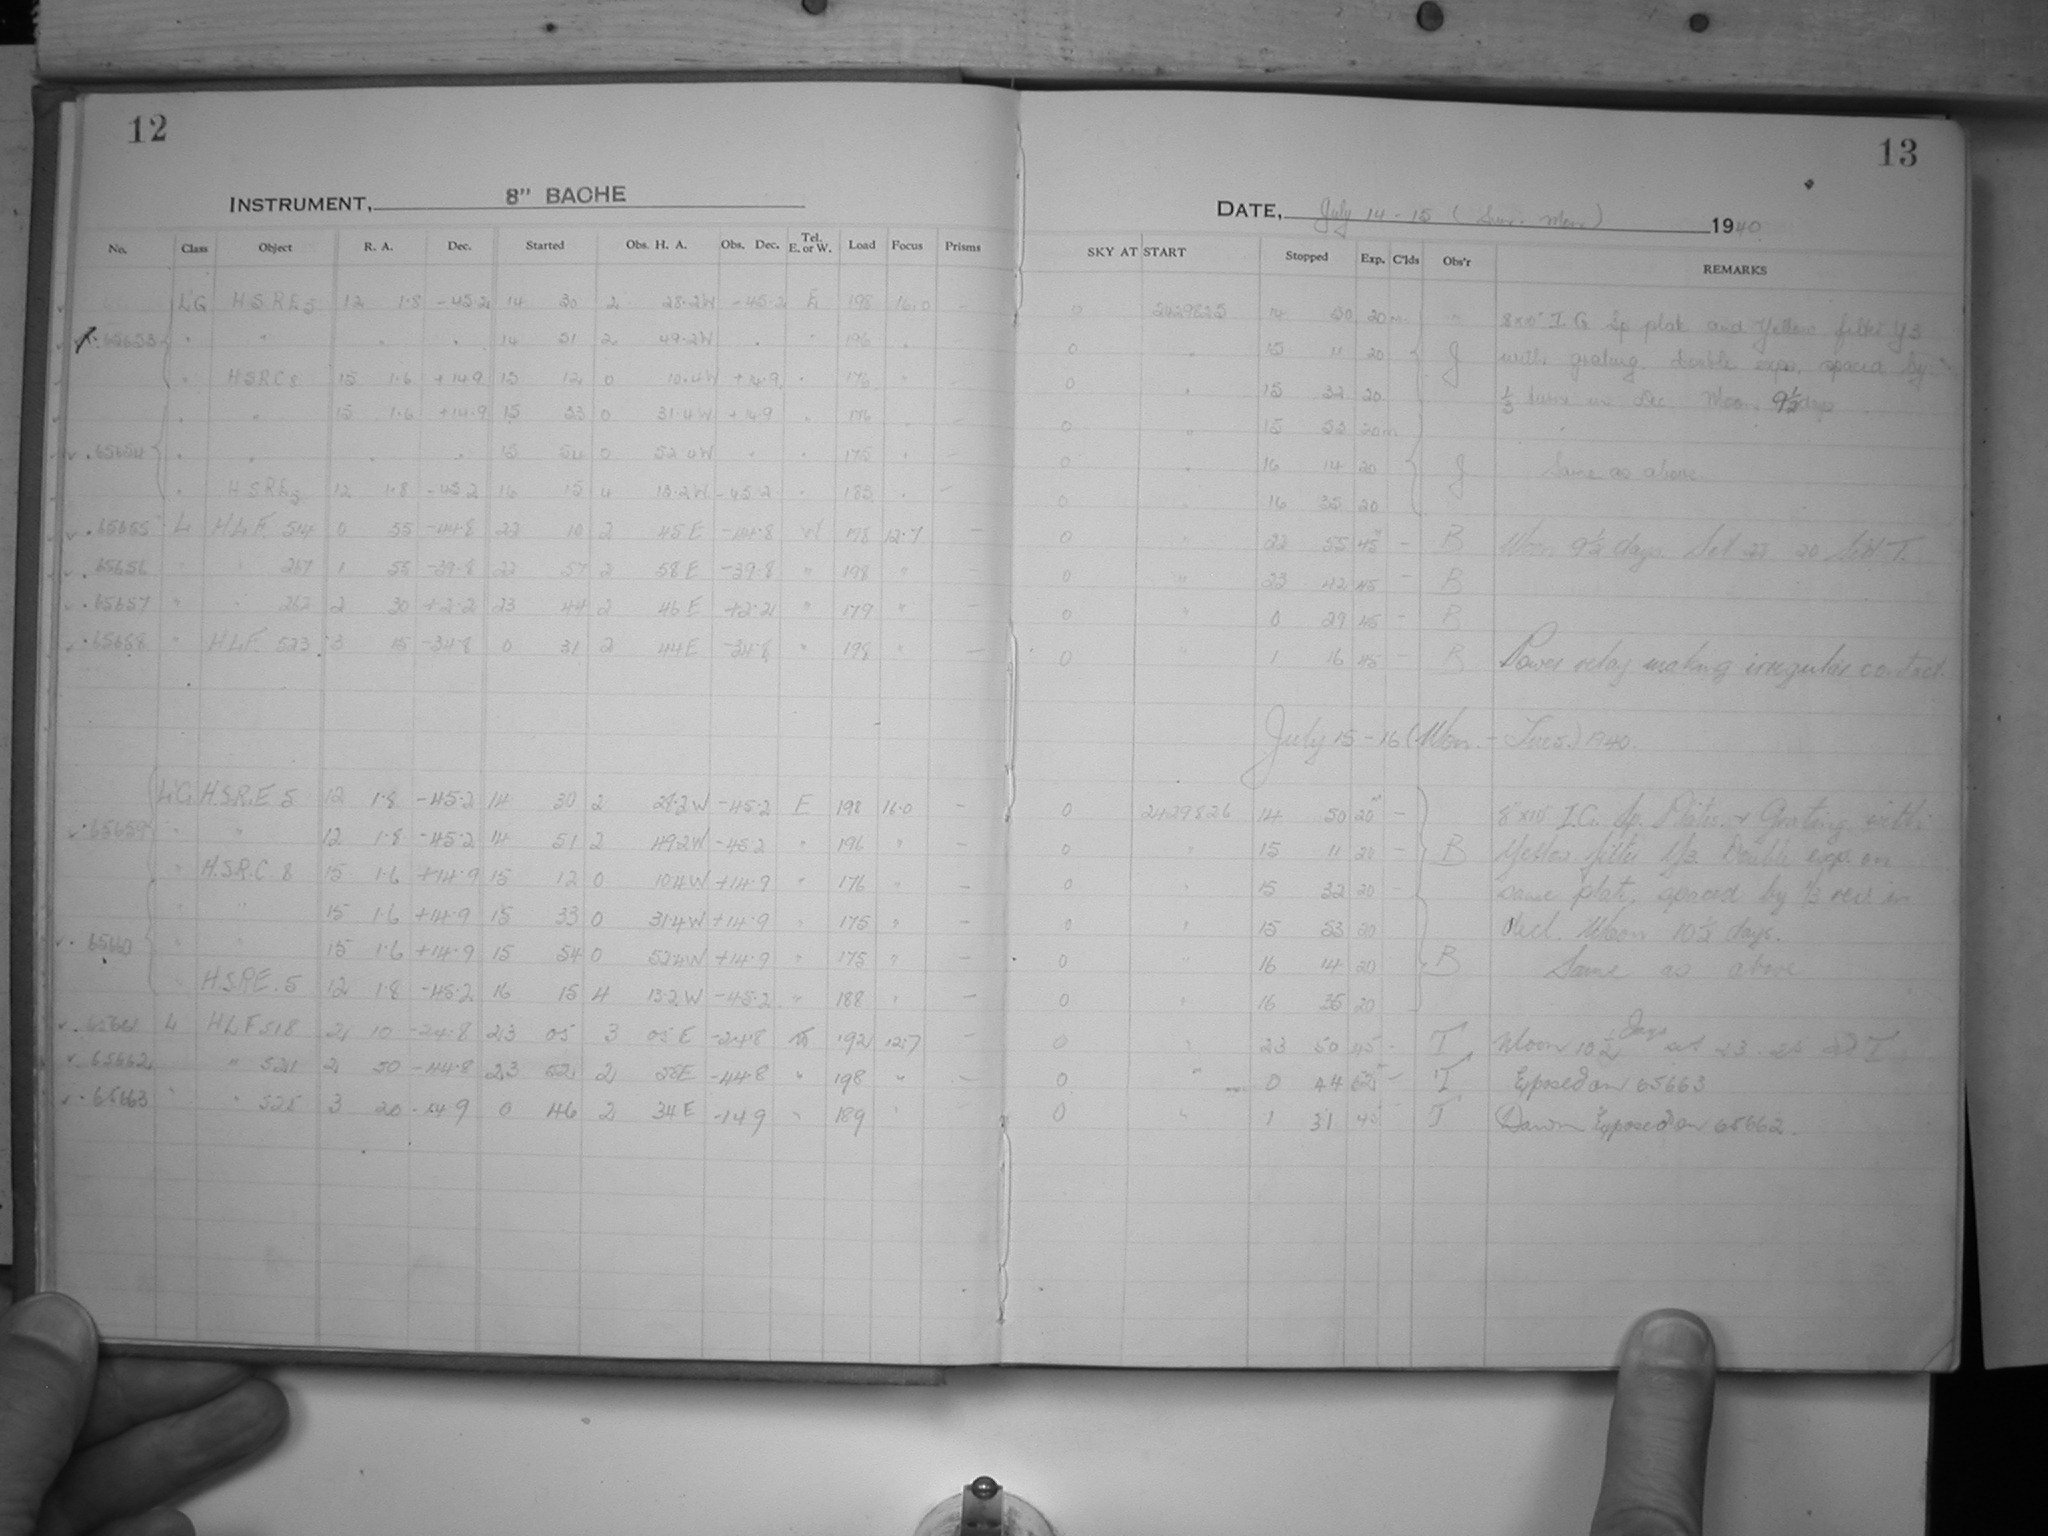 12
INSTRUMENT, 8" BACHE
No. Class Object R. A. Dec. Started Obs. H. A. Obs. Dec. Tel. E. or W. Load Focus Prisms
L'G H.S.R.E 5 12 1.8 -45.2 14 30 2 28.2W -45.2 E 198 16.0 -
65653 " " " " 14 51 2 49.2W " " 196 "
" H.S.R.C 8 15 1.6 +14.9 15 12 0 10.4W +14.9 " 176 "
" " 15 1.6 +14.9 15 33 0 31.4W +14.9 " 176 "
65654 " " " " 15 54 0 52.4W " " 175 " -
" H.S.R.E 5 12 1.8 -45.2 16 15 4 13.2W -45.2 " 185 " -
65655 L H.L.F. 514 0 55 -44.8 22 10 2 45 E -44.8 W 198 12.7 -
65656 " " 267 1 55 -39.8 22 57 2 58 E -39.8 " 198 " -
65657 " " 262 2 30 +2.2 23 44 2 46 E +2.2 " 179 " -
65658 " H.L.F. 523 3 15 -34.8 0 31 2 44 E -34.8 " 198 " -
L'G H.S.R.E 5 12 1.8 -45.2 14 30 2 28.2W -45.2 E 198 16.0 -
65659 " " 12 1.8 -45.2 14 51 2 49.2W -45.2 " 196 " -
" H.S.R.C 8 15 1.6 +14.9 15 12 0 10.4W +14.9 " 176 " -
" " 15 1.6 +14.9 15 33 0 31.4W +14.9 " 175 " -
65660 " " 15 1.6 +14.9 15 54 0 52.4W +14.9 " 175 " -
" H.S.R.E. 5 12 1.8 -45.2 16 15 4 13.2W -45.2 " 188 " -
65661 L H L F 518 2 10 -24.8 23 05 3 05 E -24.8 192 12.7 -
65662 " " 521 2 50 -44.8 23 52 2 58E -44.8 " 198 " -
65663 " " 525 3 20 -14.9 0 46 2 34 E -14.9 " 189 "
13
DATE, July 14-15 (Sun. Mon) 1940
SKY AT START Stopped Exp. C'lds Obs'r REMARKS
0 2429825 14 50 20m " 8x10" I.G. Sp plate and Yellow filter Y3
0 " 15 11 20 J with grating. double expo. spaced by
0 " 15 32 20 1/3 turn in Dec. Moon 9½ days
0 " 15 53 20m
0 " 16 14 20 J Same as above.
0 " 16 35 20
0 " 22 55 45m - B Moon 9½ days. Set 22 20 Sid. T.
0 " 23 42 45 - B
0 " 0 29 45 - B
0 " 1 16 45 - B Power relay making irregular contact
July 15-16 (Mon. - Tues.) 1940.
0 2429826 14 50 20m - 8"x10" I.G. Sp. Plates & Grating with
0 " 15 11 20 - B Yellow filter Y3. Double exp. on
0 " 15 32 20 - same plate, spaced by 1/3 rev. in
0 " 15 53 20 decl. Moon 10½ days.
0 " 16 14 20 B Same as above
0 " 16 35 20
0 " 23 50 45 - T Moon 10½ Days set 23
0 " 0 44 52 - T Exposed on 65663
0 " 1 31 45 T Dawn Exposed on 65662.